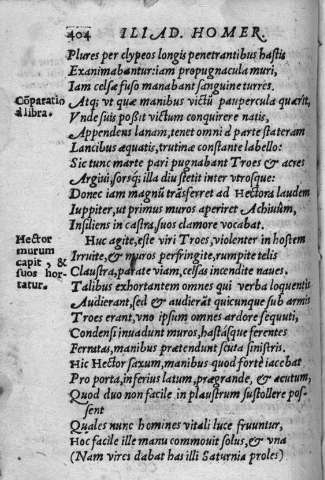 404 ILIAD. HOMER.
Plures per clypeos longis penetrantibus hastis
Exanimabantur: iam propugnacula muri,
Iam celsæ fuso manabant sanguine turres.
Cōparatio
á libra.
Atq; vt quæ manibus victū paupercula quærit,
Vnde suis poßit victum conquirere natis,
Appendens lanam, tenet omni à parte stateram
Lancibus æquatis, trutinæ constante labello:
Sic tunc marte pari pugnabant Troes & acres
Argiui, sorsq; illa diu stetit inter vtrosque:
Donec iam magnū trāsferret ad Hectora laudem
Iuppiter, ut primus muros aperiret Achiuūm,
Insiliens in castra, suos clamore vocabat.
Hector
murum
capit, &
suos hor-
tatur.
Huc agite, este viri Troes, violenter in hostem
Irruite, & muros perfringite, rumpite telis
Claustra, parate viam, celsas incendite naues.
Talibus exhortantem omnes qui verba loquentis
Audierant, sed & audierāt quicunque sub armis
Troes erant, vno ipsum omnes ardore sequuti,
Condensi inuadunt muros, hastásque ferentes
Ferratas, manibus prætendunt scuta sinistris.
Hic Hector saxum, manibus quod forte iacebat
Pro porta, inferius latum, prægrande, & acutum,
Quod duo non facile in plaustrum sustollere pos-
sent
Quales nunc homines vitali luce fruuntur,
Hoc facile ille manu commouit solus, & vna
(Nam vires dabat has illi Saturnia proles)